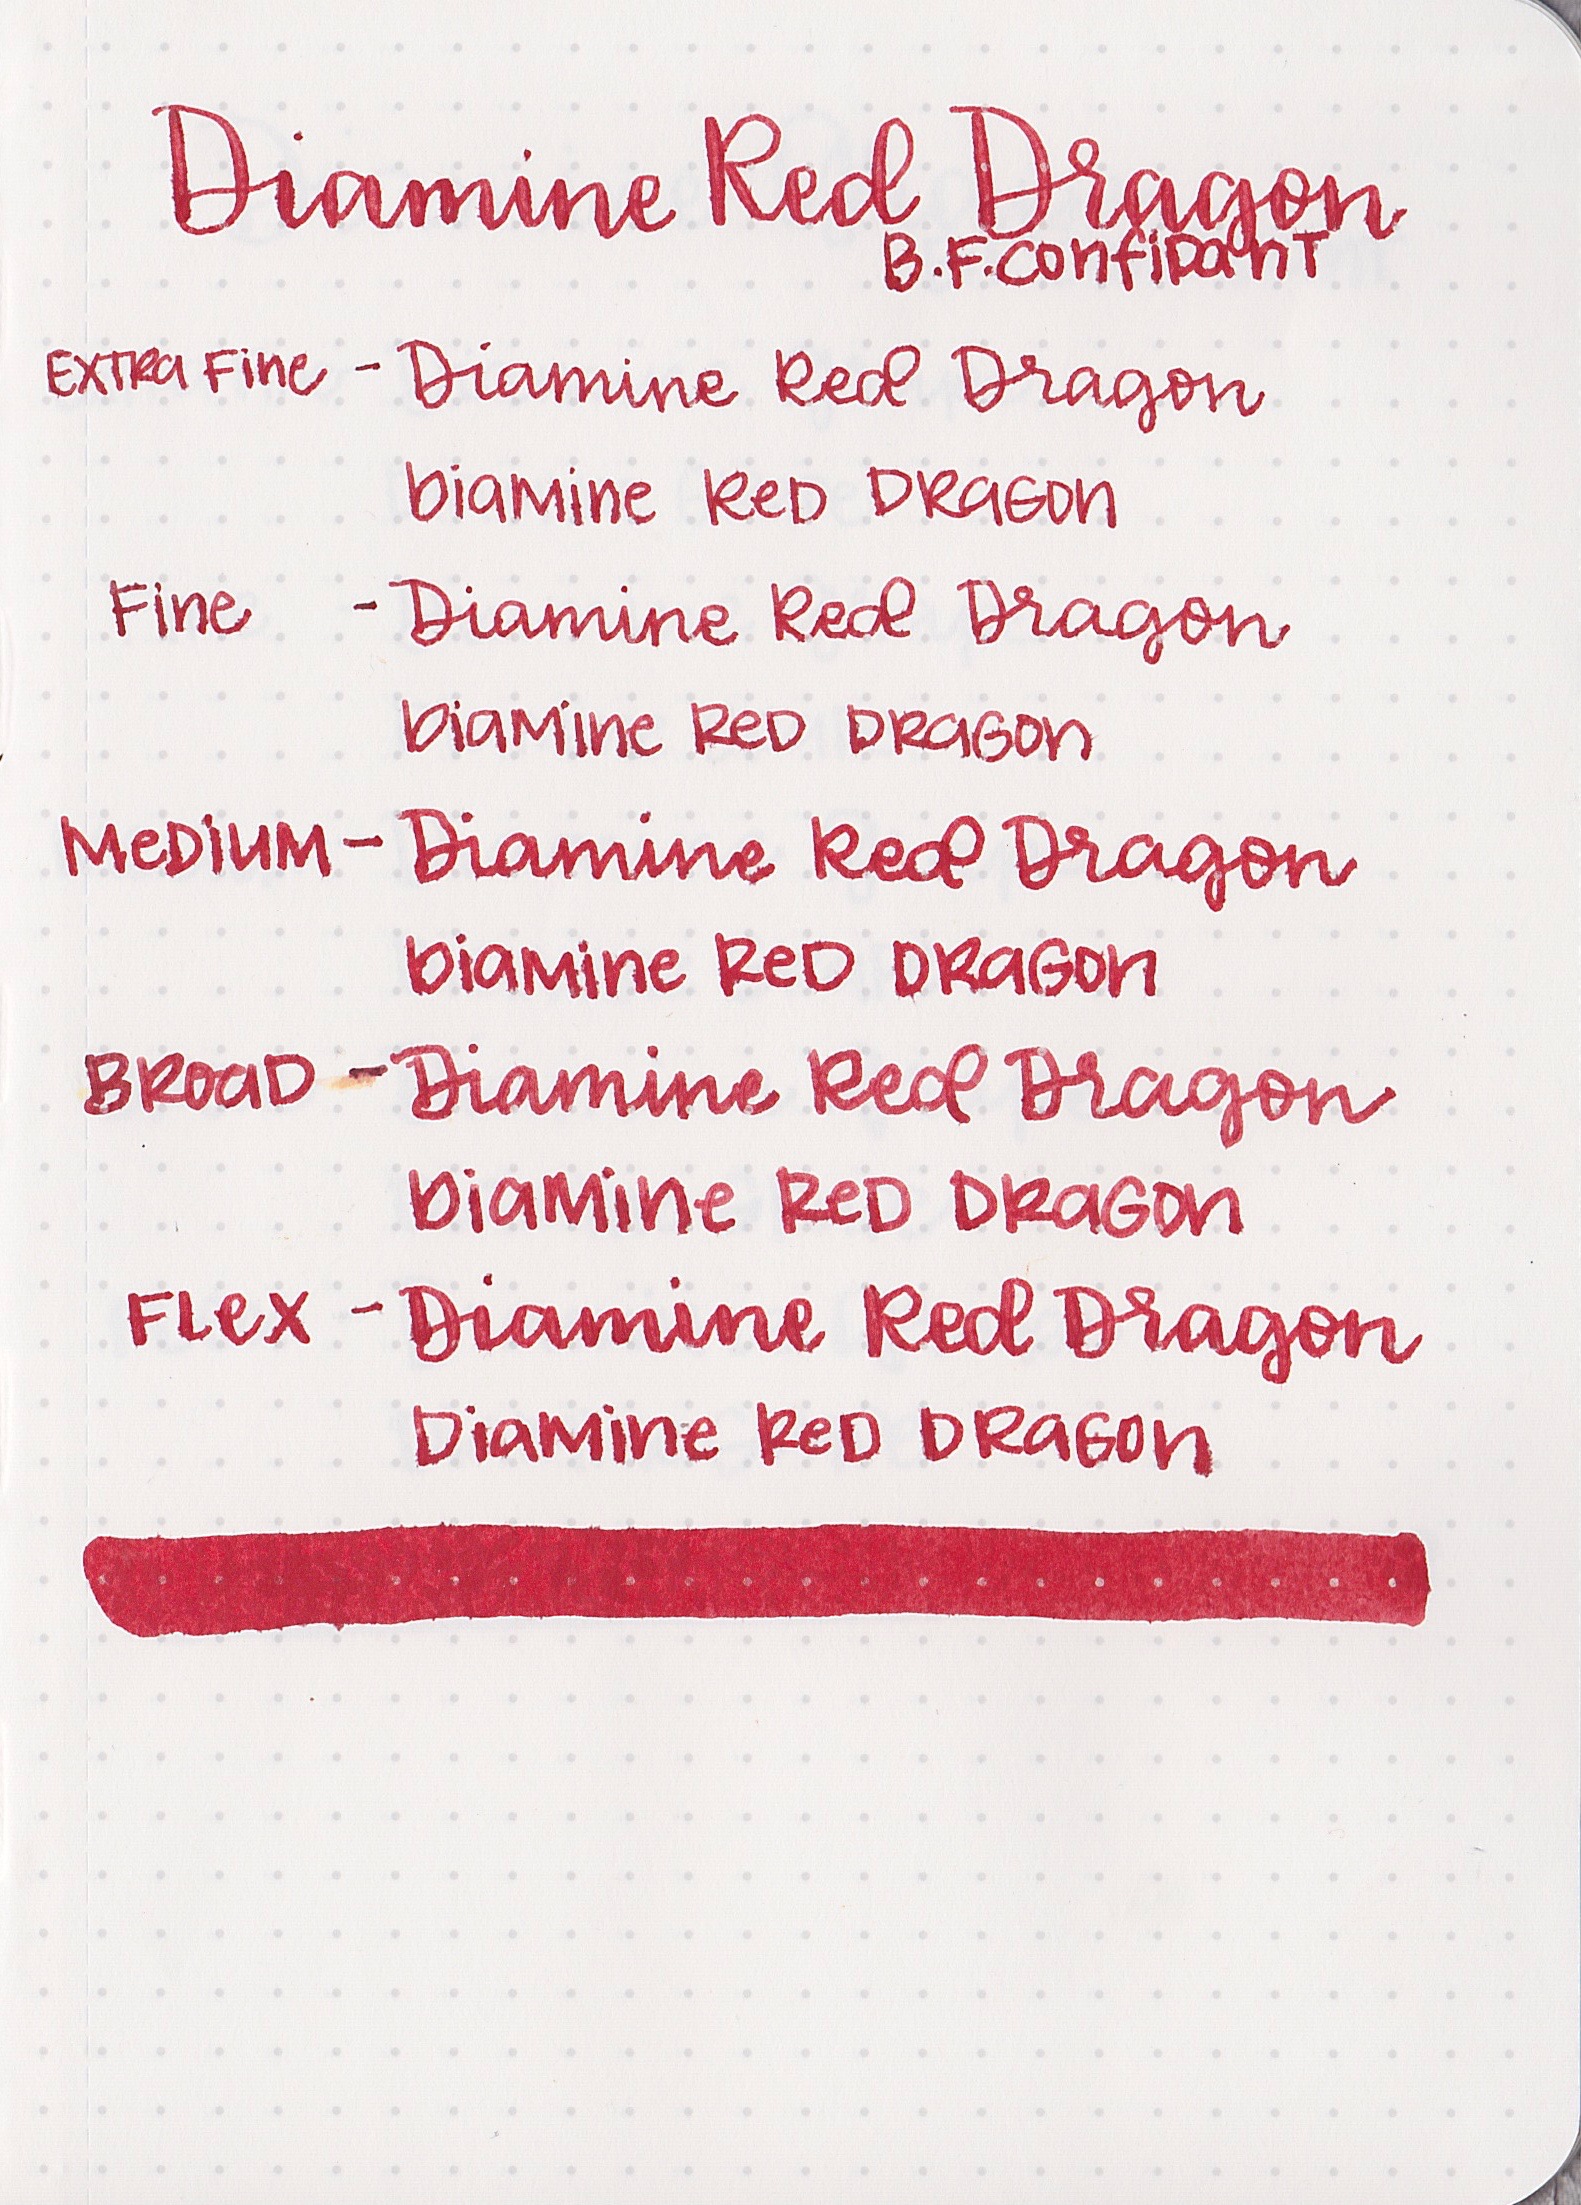 Diamine Red Dragon
B.F. Confidant
Extra Fine - Diamine Red Dragon
Diamine Red Dragon
Fine - Diamine Red Dragon
Diamine Red Dragon
Medium - Diamine Red Dragon
Diamine Red Dragon
Broad - Diamine Red Dragon
Diamine Red Dragon
Flex - Diamine Red Dragon
Diamine Red Dragon